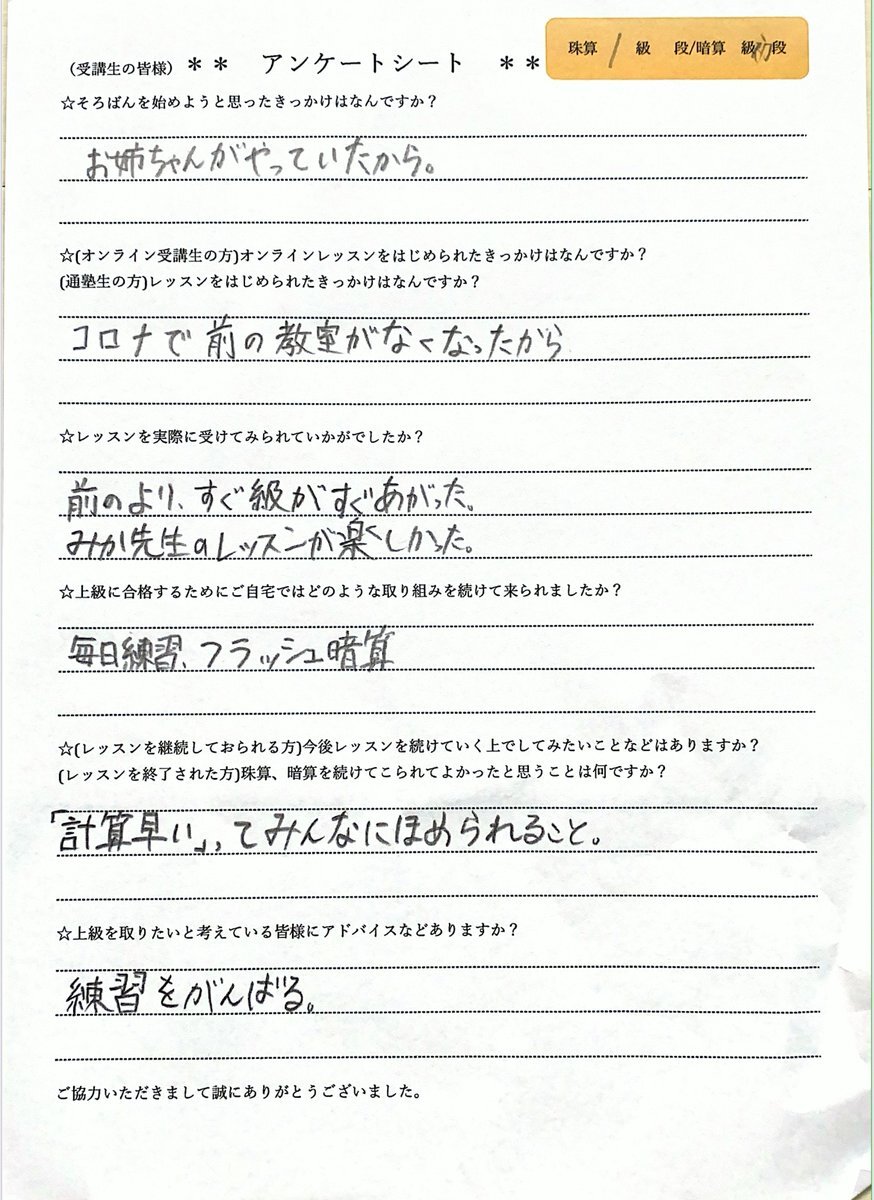 (受講生の皆様) ** アンケートシート **
珠算 1 級 段/暗算 級 初段
☆そろばんを始めようと思ったきっかけはなんですか？
お姉ちゃんがやっていたから。
☆(オンライン受講生の方)オンラインレッスンをはじめられたきっかけはなんですか？
(通塾生の方)レッスンをはじめられたきっかけはなんですか？
コロナで前の教室がなくなったから
☆レッスンを実際に受けてみられていかがでしたか？
前のより、すぐ級がすぐあがった。
みか先生のレッスンが楽くしかった。
☆上級に合格するためにご自宅ではどのような取り組みを続けて来られましたか？
毎日練習、フラッシュ暗算
☆(レッスンを継続しておられる方)今後レッスンを続けていく上でしてみたいことなどはありますか？
(レッスンを終了された方)珠算、暗算を続けてこられてよかったと思うことは何ですか？
「計算早い」、ってみんなにほめられること。
☆上級を取りたいと考えている皆様にアドバイスなどありますか？
練習をがんばる。
ご協力いただきまして誠にありがとうございました。